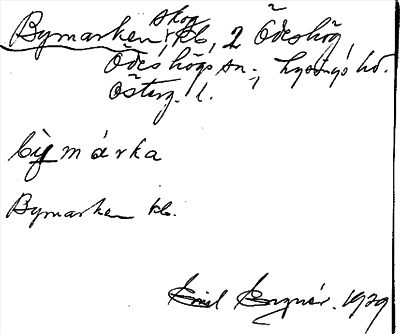 Bymarken, skog, kb, 2 Ödeshög,
Ödeshögs sn., Lysings hd.
Österg. l.
bỳmárka
Bymarken kb.
Emil 1929